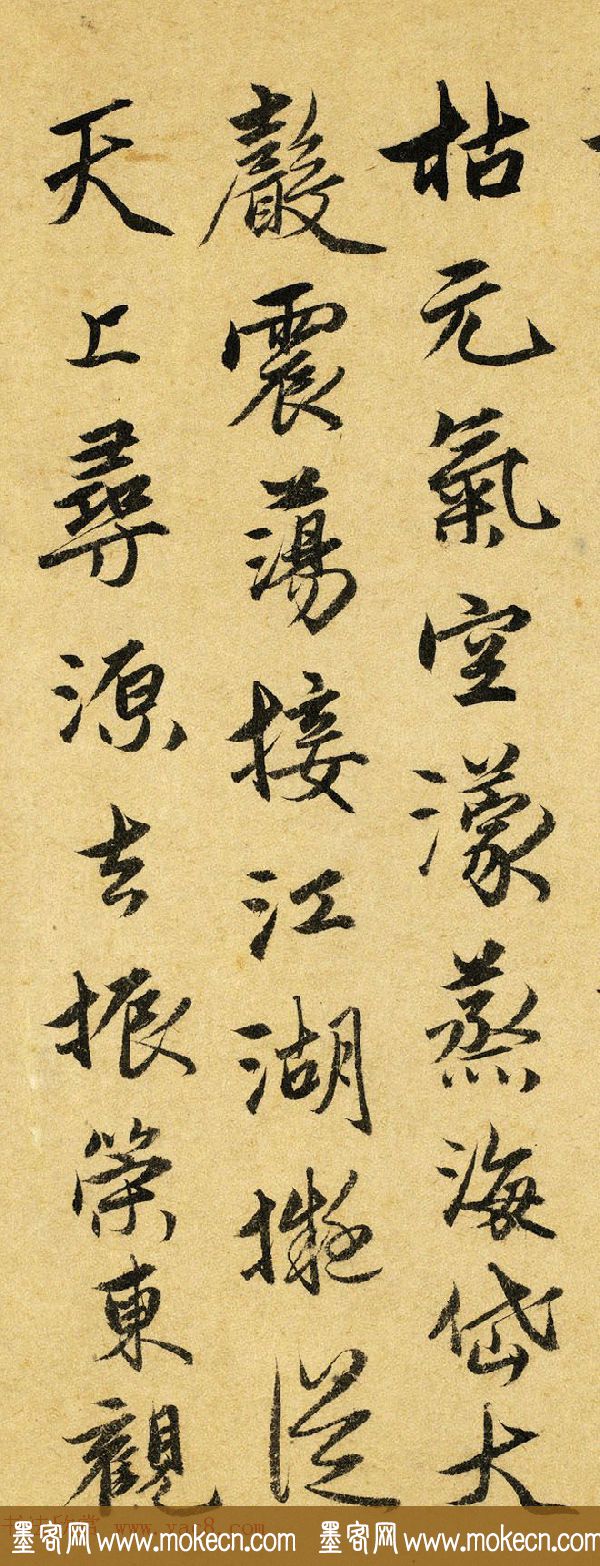 枯元氣空濛蒸海岱大
聲震蕩接江湖擬從
天上尋源去振策東觀
墨客网 www.mokecn.com 墨客网 www.mokecn.com